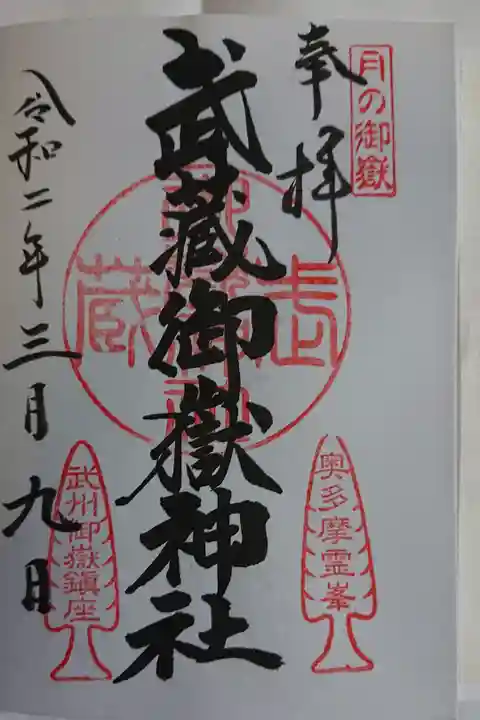 月の御嶽
奉拝
武蔵御嶽神社
令和二年三月九日
奥多摩霊峯
武州御嶽鎮座